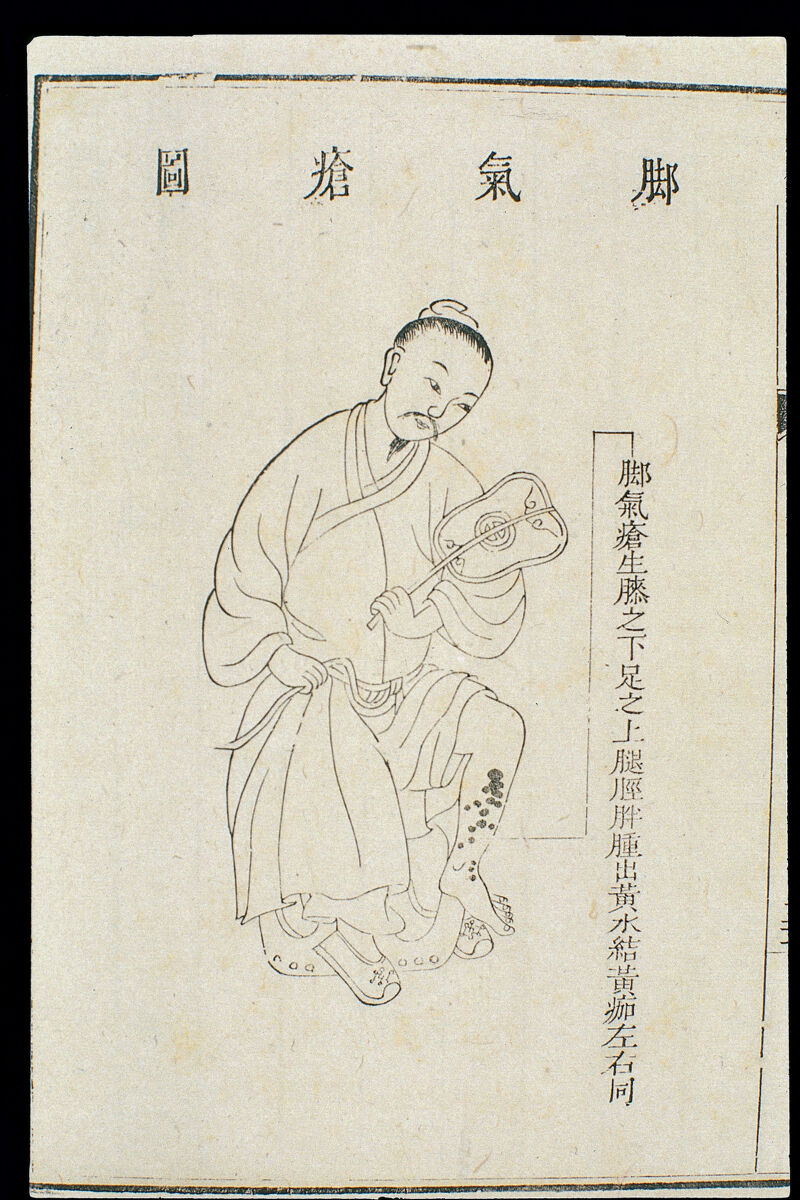 脚氣瘡圖
脚氣瘡生膝之下足之上腿脛胖腫出黃水結黃痂左右同